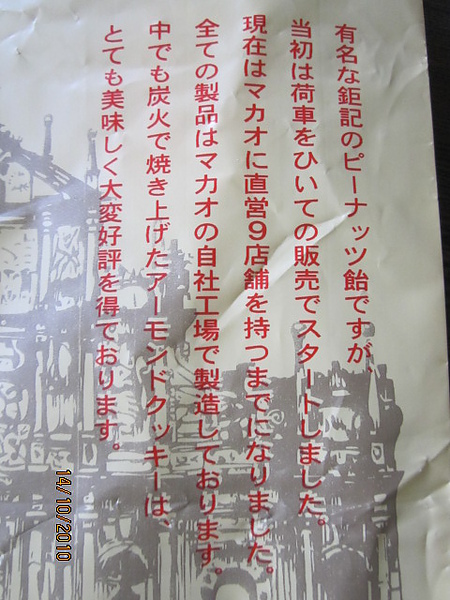 有名な鉅記のピーナッツ飴ですが、
当初は荷車をひいての販売でスタートしました。
現在はマカオに直営9店舗を持つまでになりました。
全ての製品はマカオの自社工場で製造しております。
中でも炭火で焼き上げたアーモンドクッキーは、
とても美味しく大変好評を得ております。
14/10/2010